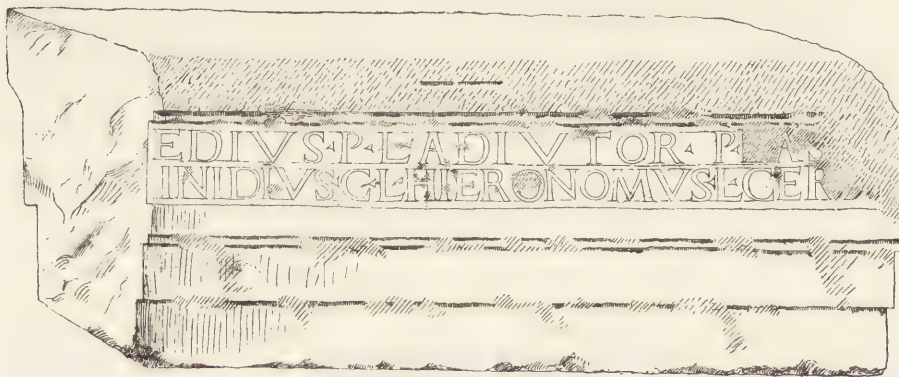 EDIVS·P·L·ADIVTOR·P·LAN
INIDIVS·C·L·HIERONOMVS·ECER